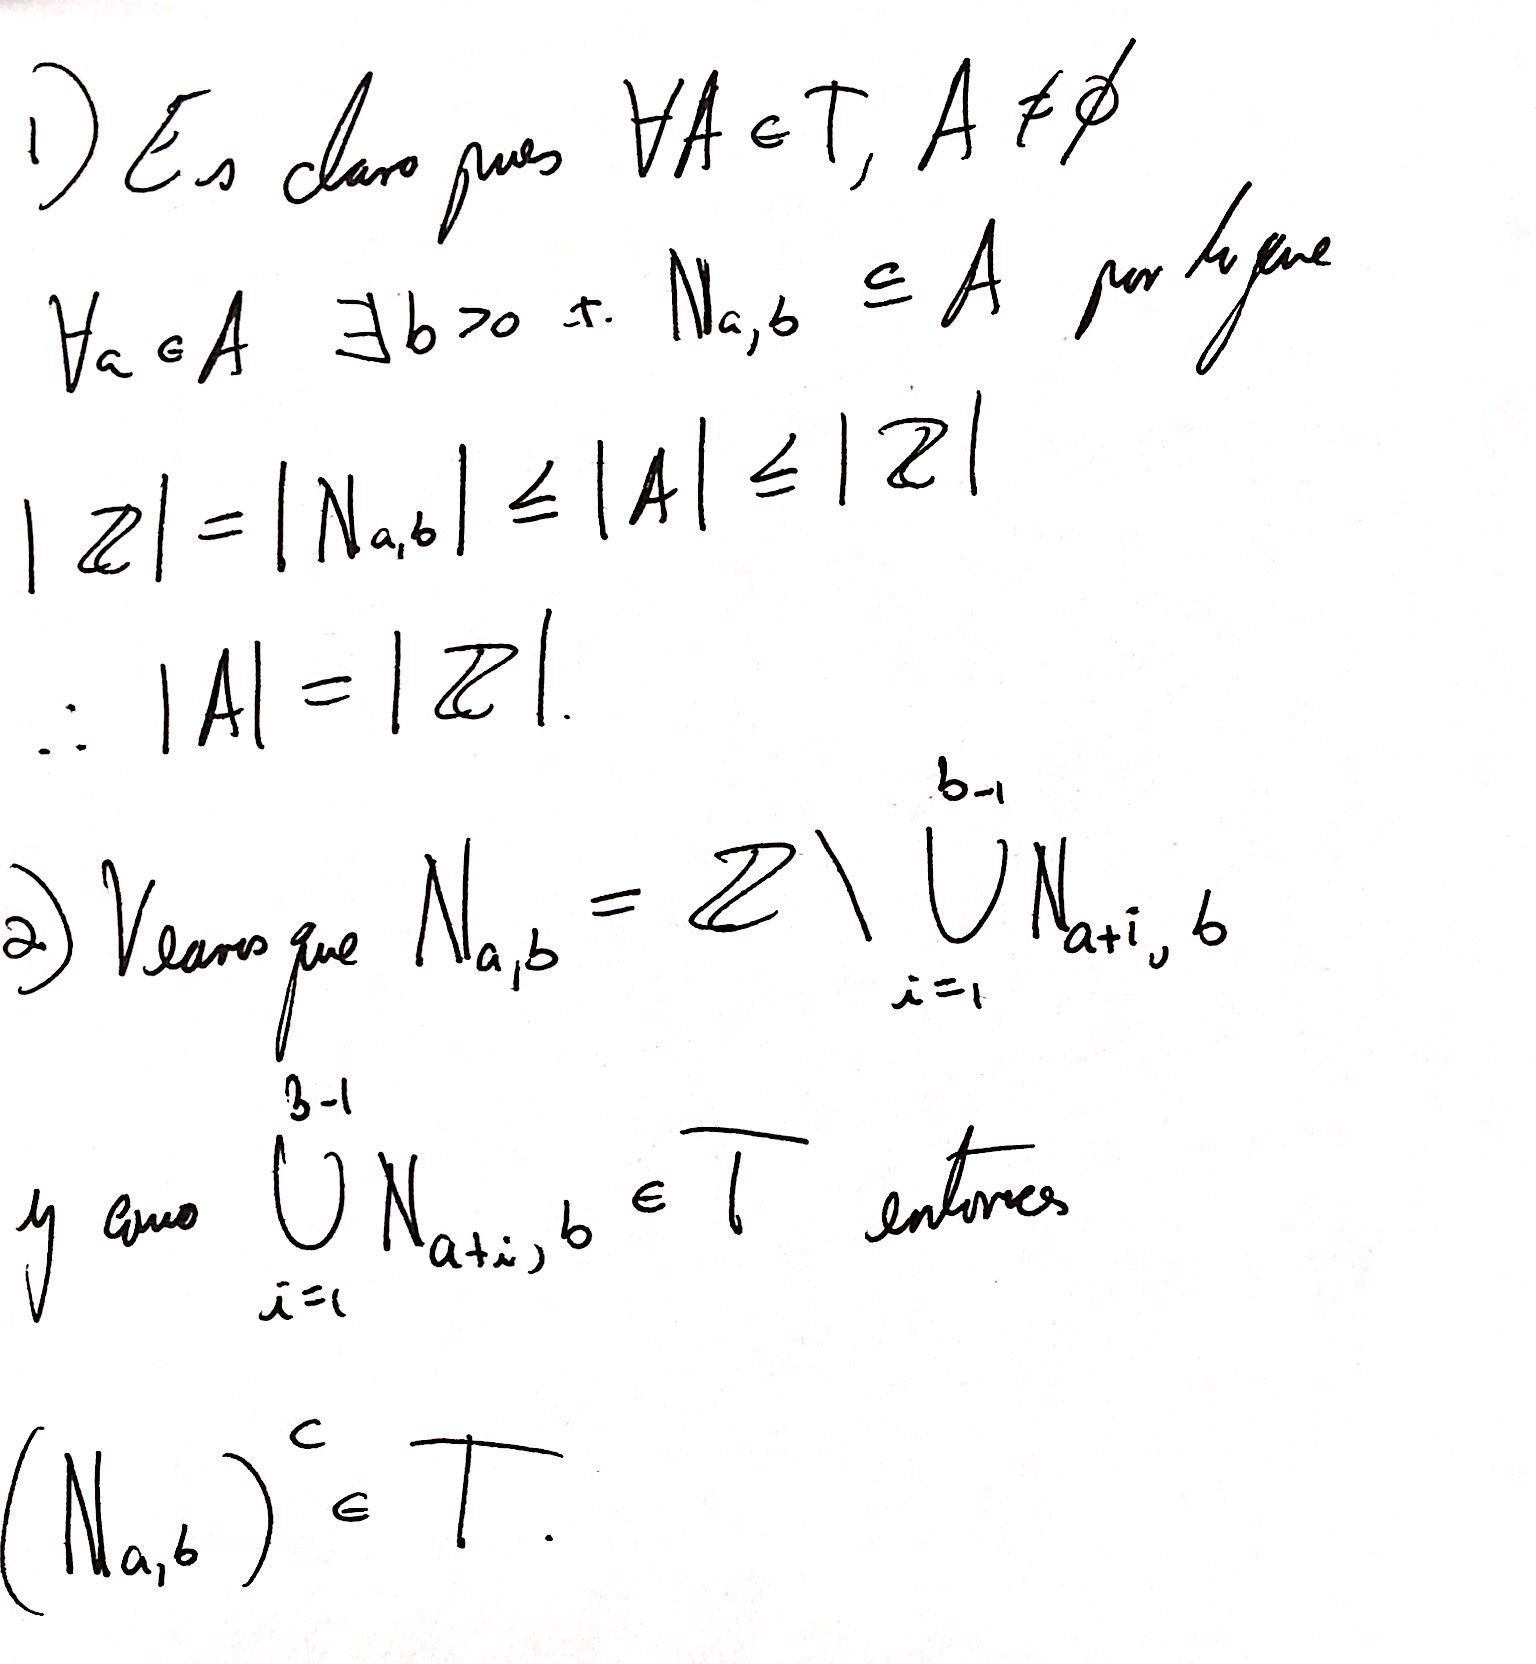 1) Es claro pues ∀A ∈ T, A ≠ ∅
∀a ∈ A ∃b >0 t. N_{a,b} ⊆ A por lo que
|ℤ| = |N_{a,b}| ≤ |A| ≤ |ℤ|
∴ |A| = |ℤ|.
2) Veamos que N_{a,b} = ℤ \ ⋃_{i=1}^{b-1} N_{a+i, b}
y como ⋃_{i=1}^{3-1} N_{a+i, b} ∈ T entonces
(N_{a,b})^c ∈ T.